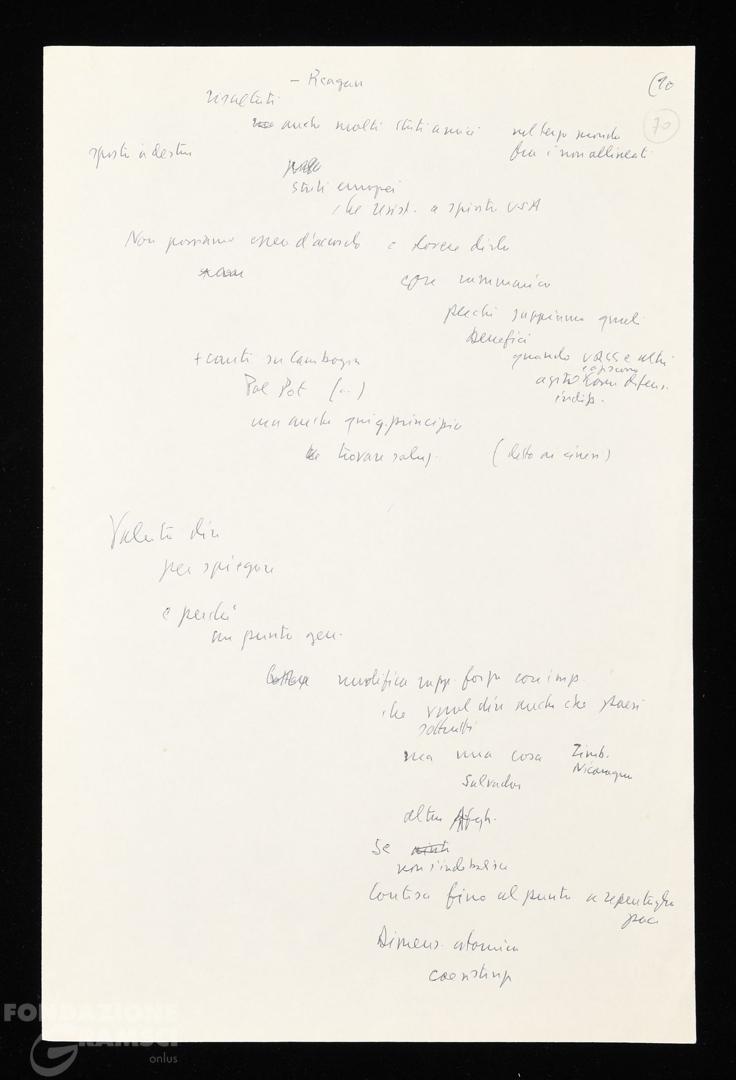 – Reagan (10
risultati
70
anche molti stati amici nel terzo mondo
sposta a destra fra i non allineati
stati europei
che resist. a spinta USA
Non possiamo essere d'accordo e dovere dirlo
con rammarico
perché sappiamo quali
benefici
+ cauti su Cambogia quando URSS e altri
Pol Pot (..)
indip.
ma anche qui q. principio
trovare soluz. (detto ai cinesi)
Valenta dir
per spiegare
e perché
un punto gen.
modifica rapp. forza con imp.
che vuol dire anche che paesi
sottratti
ma una cosa Zimb.
Nicaragua
Salvador
altra Afgh.
Se
non s'indebolisce
Contesa fino al punto a repentaglio
pace
Dimens. atomica
coesistenza
FONDAZIONE
GRAMSCI
onlus